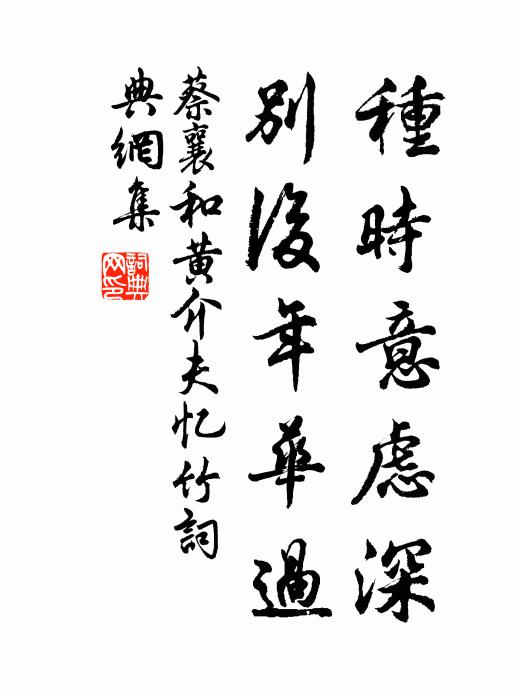 種時意慮深
別後年華過
蔡襄和黃介夫忆竹詞
典網集
詞典
网印